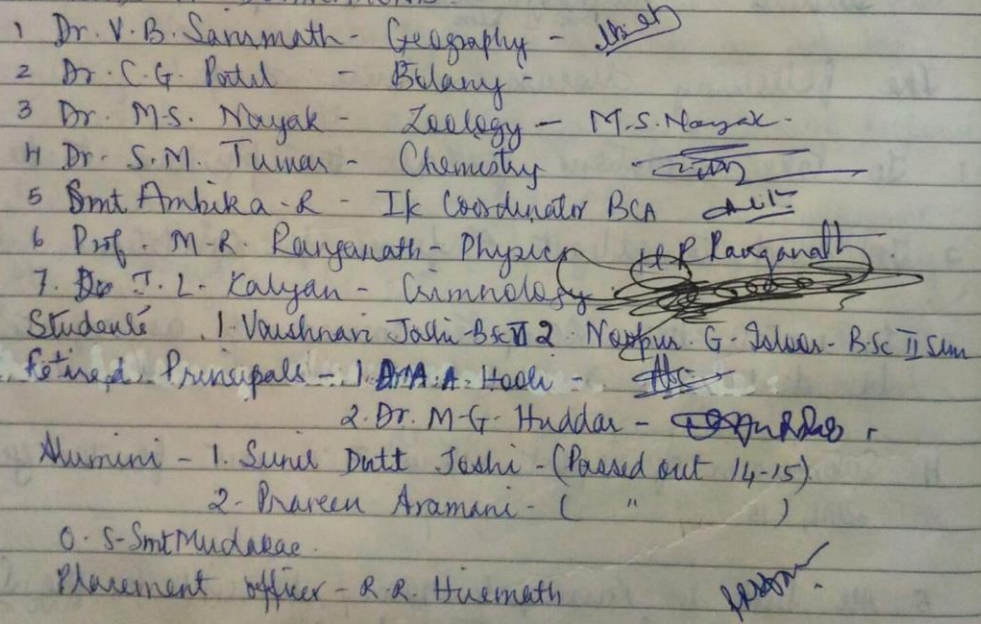 1 Dr. V. B. Sansmath - Geography -
2 Dr. C. G. Patil - Botany -
3 Dr. M.S. Nayak - Zoology - M.S. Nayak.
4 Dr. S.M. Tumar - Chemistry -
5 Smt Ambika. R - Ik Coordinator BCA
6 Prof. M.R. Ranganath - Physics H.R Ranganath
7. Dr J. L. Kalyan - Crimnology
Students 1. Vaishnavi Joshi - BSc VI 2. G. - B.Sc II Sem
Retired Principals - 1. Dr A.A. Hooli -
2. Dr. M.G. Huddar -
Alumini - 1. Sunil Dutt Joshi - (Passed out 14-15)
2 - Praveen Aramani - ( " )
O.S - Smt
Placement officer - R.R. Hiremath